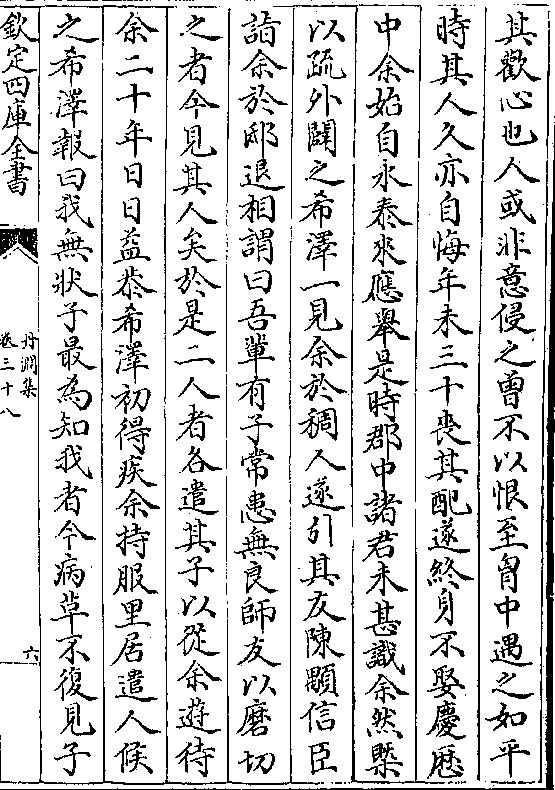 其歡心也人或非意侵之曾不以恨至胷中遇之如平
時其人久亦自悔年未三十喪其配遂終身不娶慶厯
中余始自永泰來應舉是時郡中諸君未甚識余然槩
以疏外闊之希澤一見余於稠人遂引其友陳顒信臣
詣余於邸退相謂曰吾輩有子常患無良師友以磨切
之者今見其人矣於是二人者各遣其子以從余遊待
余二十年日日益恭希澤初得疾余持服里居遣人候
之希澤報曰我無狀子最為知我者今病草不復見子
欽定四庫全書
丹淵集
卷三十八
六